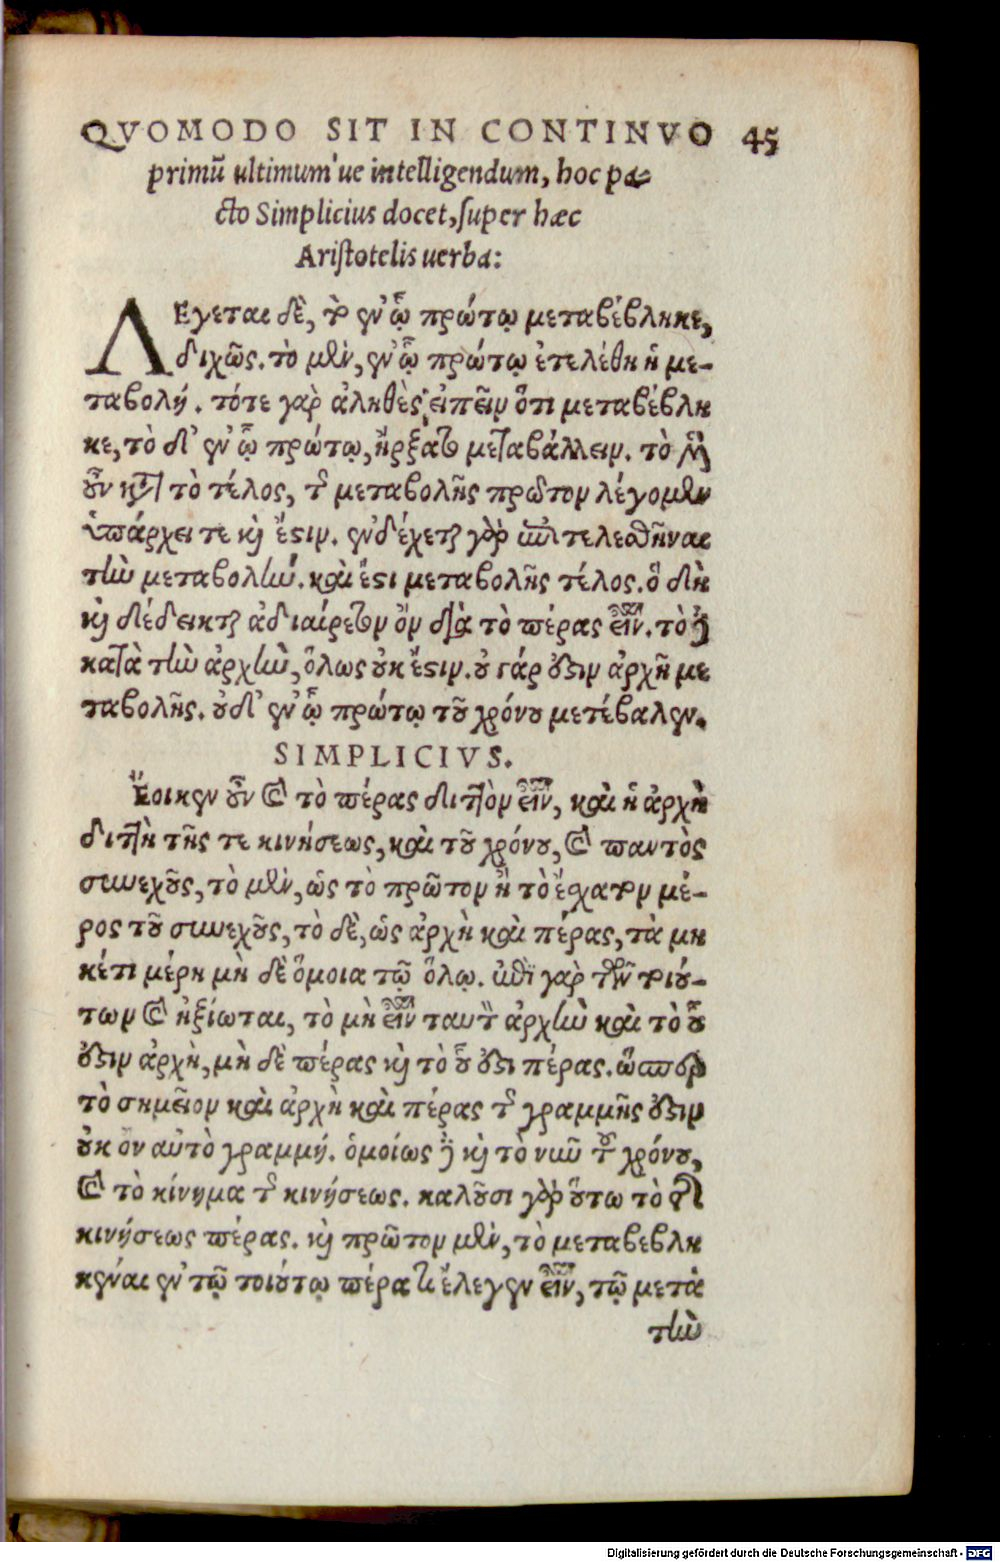 QVOMODO SIT IN CONTINVO 45
primũ ultimum'ue intelligendum, hoc pa-
cto Simplicius docet, super hæc
Aristotelis uerba:
ΛΕγεται δὲ, τὸ ἐν ᾧ πρώτῳ μεταβέβληκε,
διχῶς. τὸ μὲν, ἐν ᾧ πρώτῳ ἐτελέθη ἡ με-
ταβολή. τότε γὰρ ἀληθὲς εἰπεῖν ὅτι μεταβέβλη
κε, τὸ δ' ἐν ᾧ πρώτῳ, ἤρξατο μεταβάλλειν. τὸ μὲν
οὖν κατὰ τὸ τέλος, τῆς μεταβολῆς πρῶτον λέγομεν
ὑπάρχει τε καὶ ἔστιν. ἐνδέχεται γὰρ ἐπιτελεσθῆναι
τὴν μεταβολήν. καὶ ἔστι μεταβολῆς τέλος. ὃ δὴ
καὶ δέδεικται ἀδιαίρετον ὂν διὰ τὸ πέρας εἶναι. τὸ δὲ
κατὰ τὴν ἀρχὴν, ὅλως οὐκ ἔστιν. οὐ γάρ ἐστιν ἀρχὴ με
ταβολῆς. οὐδ' ἐν ᾧ πρώτῳ τοῦ χρόνου μετέβαλεν.
SIMPLICIVS.
Ἔοικεν οὖν καὶ τὸ πέρας διττὸν εἶναι, καὶ ἡ ἀρχὴ
διττὴ τῆς τε κινήσεως, καὶ τοῦ χρόνου, καὶ παντὸς
συνεχοῦς, τὸ μὲν, ὡς τὸ πρῶτον ἢ τὸ ἔσχατον μέ-
ρος τοῦ συνεχοῦς, τὸ δὲ, ὡς ἀρχὴ καὶ πέρας, τὰ μη
κέτι μέρη μὴ δὲ ὅμοια τῷ ὅλῳ. ἐπὶ γὰρ τῶν τοιού-
των καὶ ἠξίωται, τὸ μὴ εἶναι ταυτὸ ἀρχὴν καὶ τὸ οὗ
ἐστιν ἀρχὴ, μὴ δὲ πέρας καὶ τὸ οὗ ἐστι πέρας. ὥσπερ
τὸ σημεῖον καὶ ἀρχὴ καὶ πέρας τῆς γραμμῆς ἐστιν
οὐκ ὂν αὐτὸ γραμμή. ὁμοίως δὲ καὶ τὸ νῦν τοῦ χρόνου,
καὶ τὸ κίνημα τῆς κινήσεως. καλοῦσι γὰρ οὕτω τὸ τῆς
κινήσεως πέρας. καὶ πρῶτον μὲν, τὸ μεταβεβλη
κέναι ἐν τῷ τοιούτῳ πέρατι ἔλεγεν εἶναι, τῷ μετὰ
τὴν
Digitalisierung gefördert durch die Deutsche Forschungsgemeinschaft - DFG